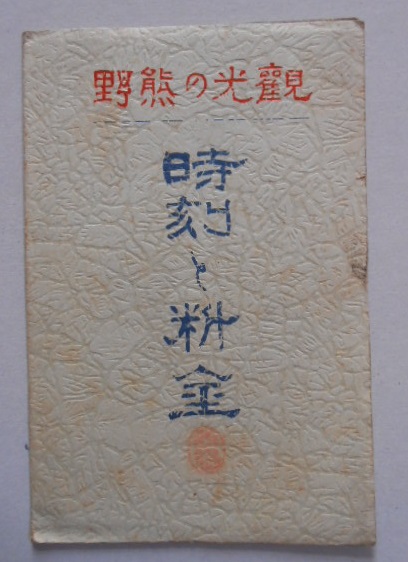 觀光の熊野
時刻と料金